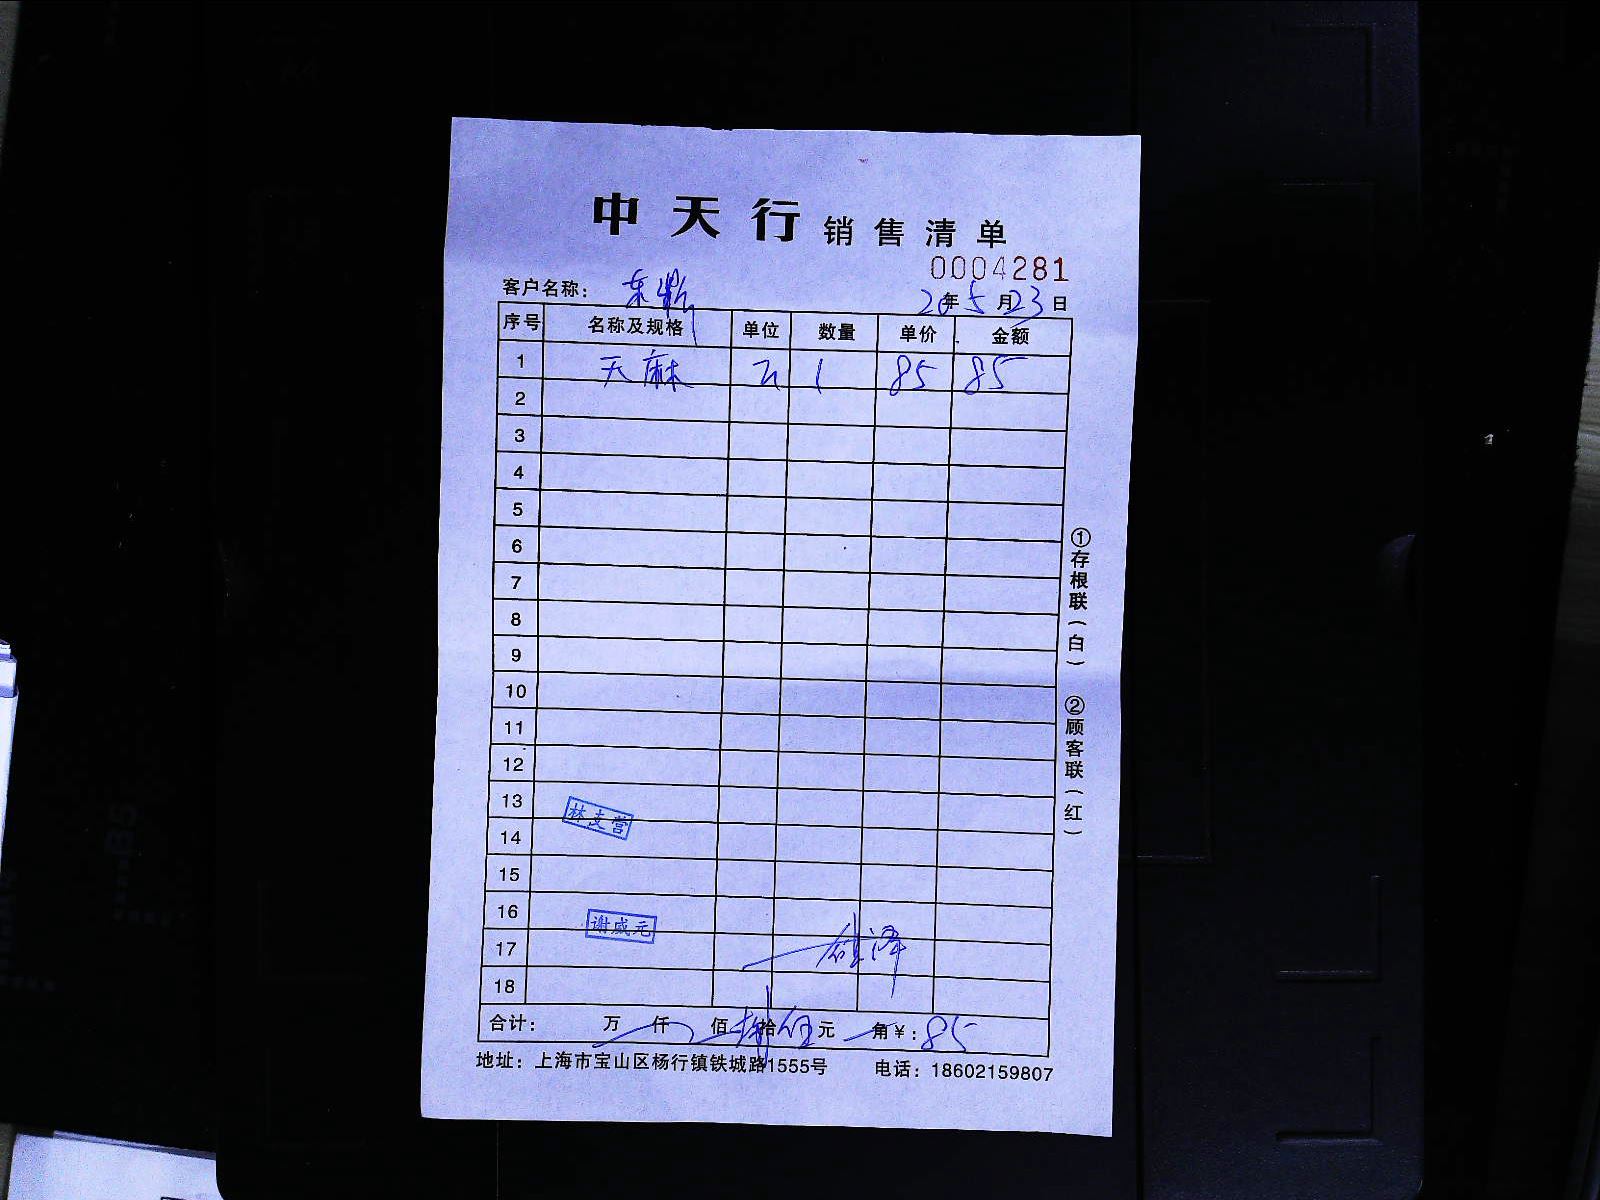 中天行 销售清单
0004281
客户名称： 东 20年5月23日
序号 名称及规格 单位 数量 单价 金额
1 天麻 1 85 85
2
3
4
5
6
7
8
9
10
11
12
13
14
林支营
15
16
谢威元
17
18
合计： 万 仟 佰 捌拾伍元 角￥：85
地址：上海市宝山区杨行镇铁城路1555号 电话：18602159807
①存根联（白） ②顾客联（红）